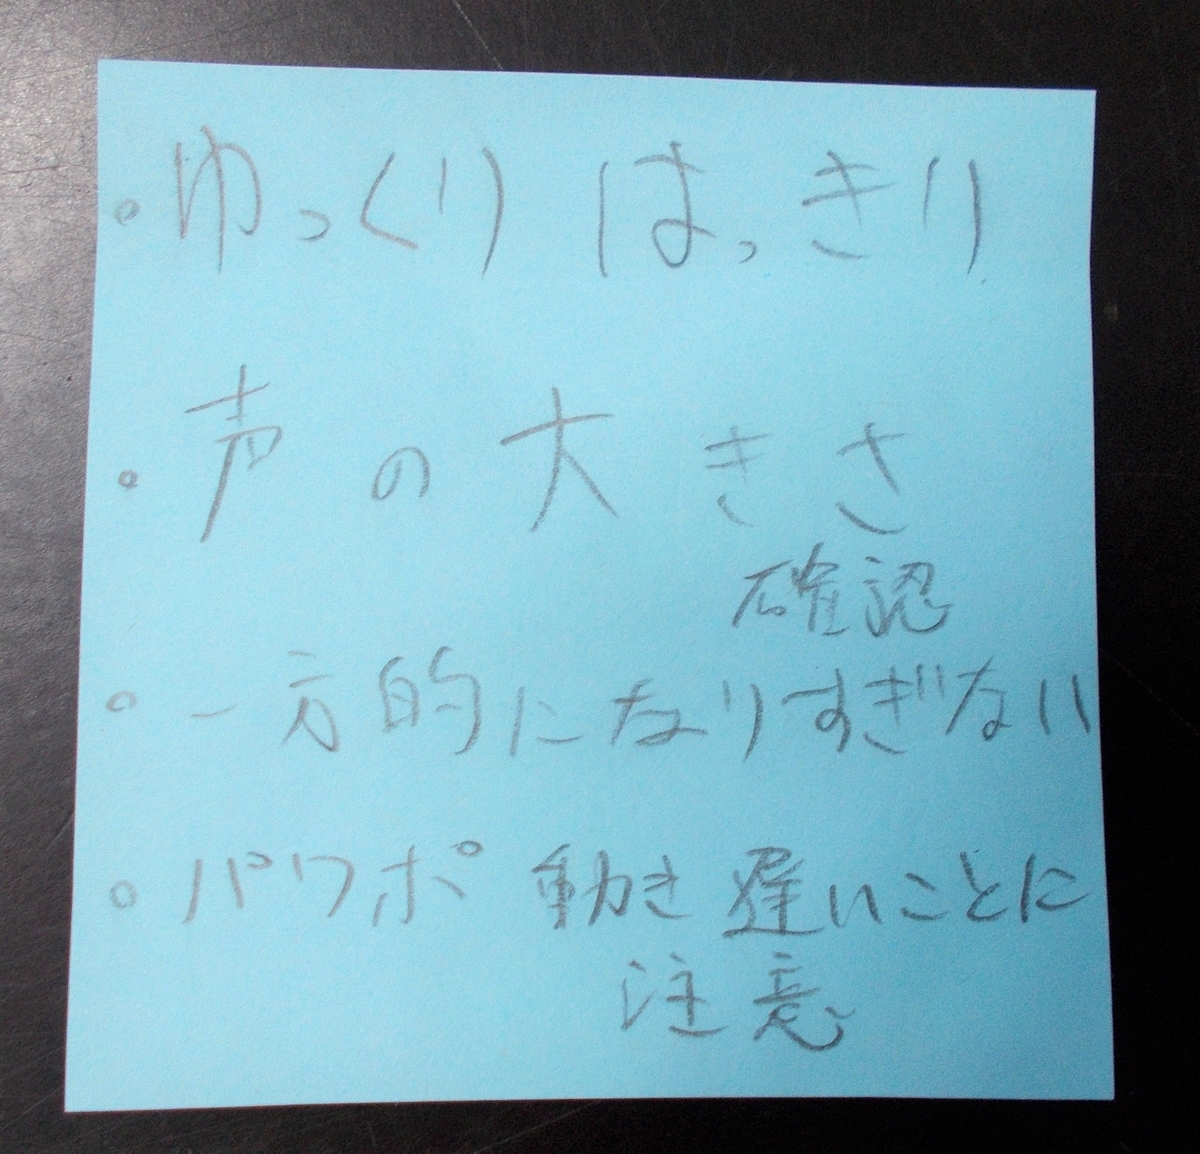 ・ゆっくり はっきり
・声の大きさ
確認
・一方的になりすぎない
・パワポ 動き遅いことに
注意